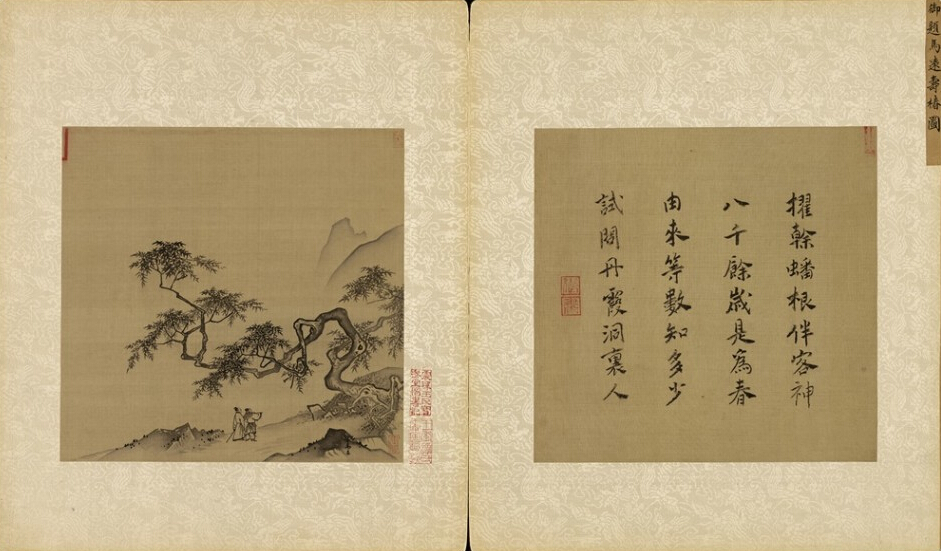 御題馬遠壽椿圖
擢榦蟠根伴容神
八千餘歲是為春
由來等數知多少
試問丹霞洞裏人